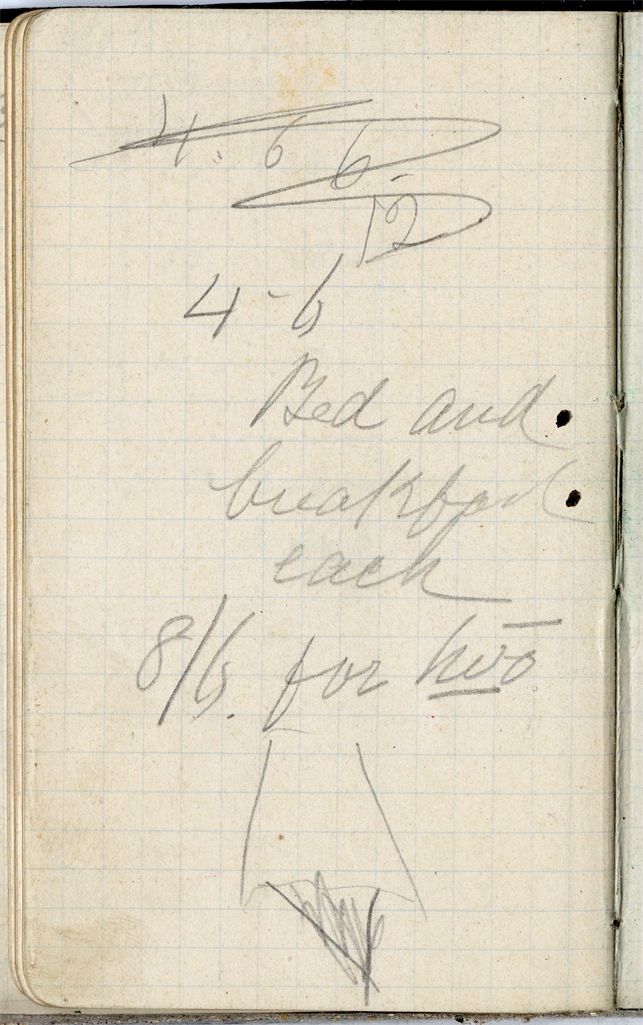 4. 6 6.
12
4-6
Bed and
breakfast
each
8/6. for two